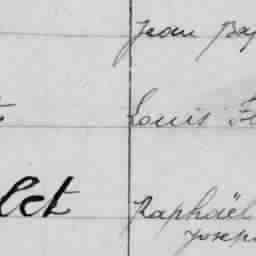 Jean Bap
Louis
let Raphaël
Joseph